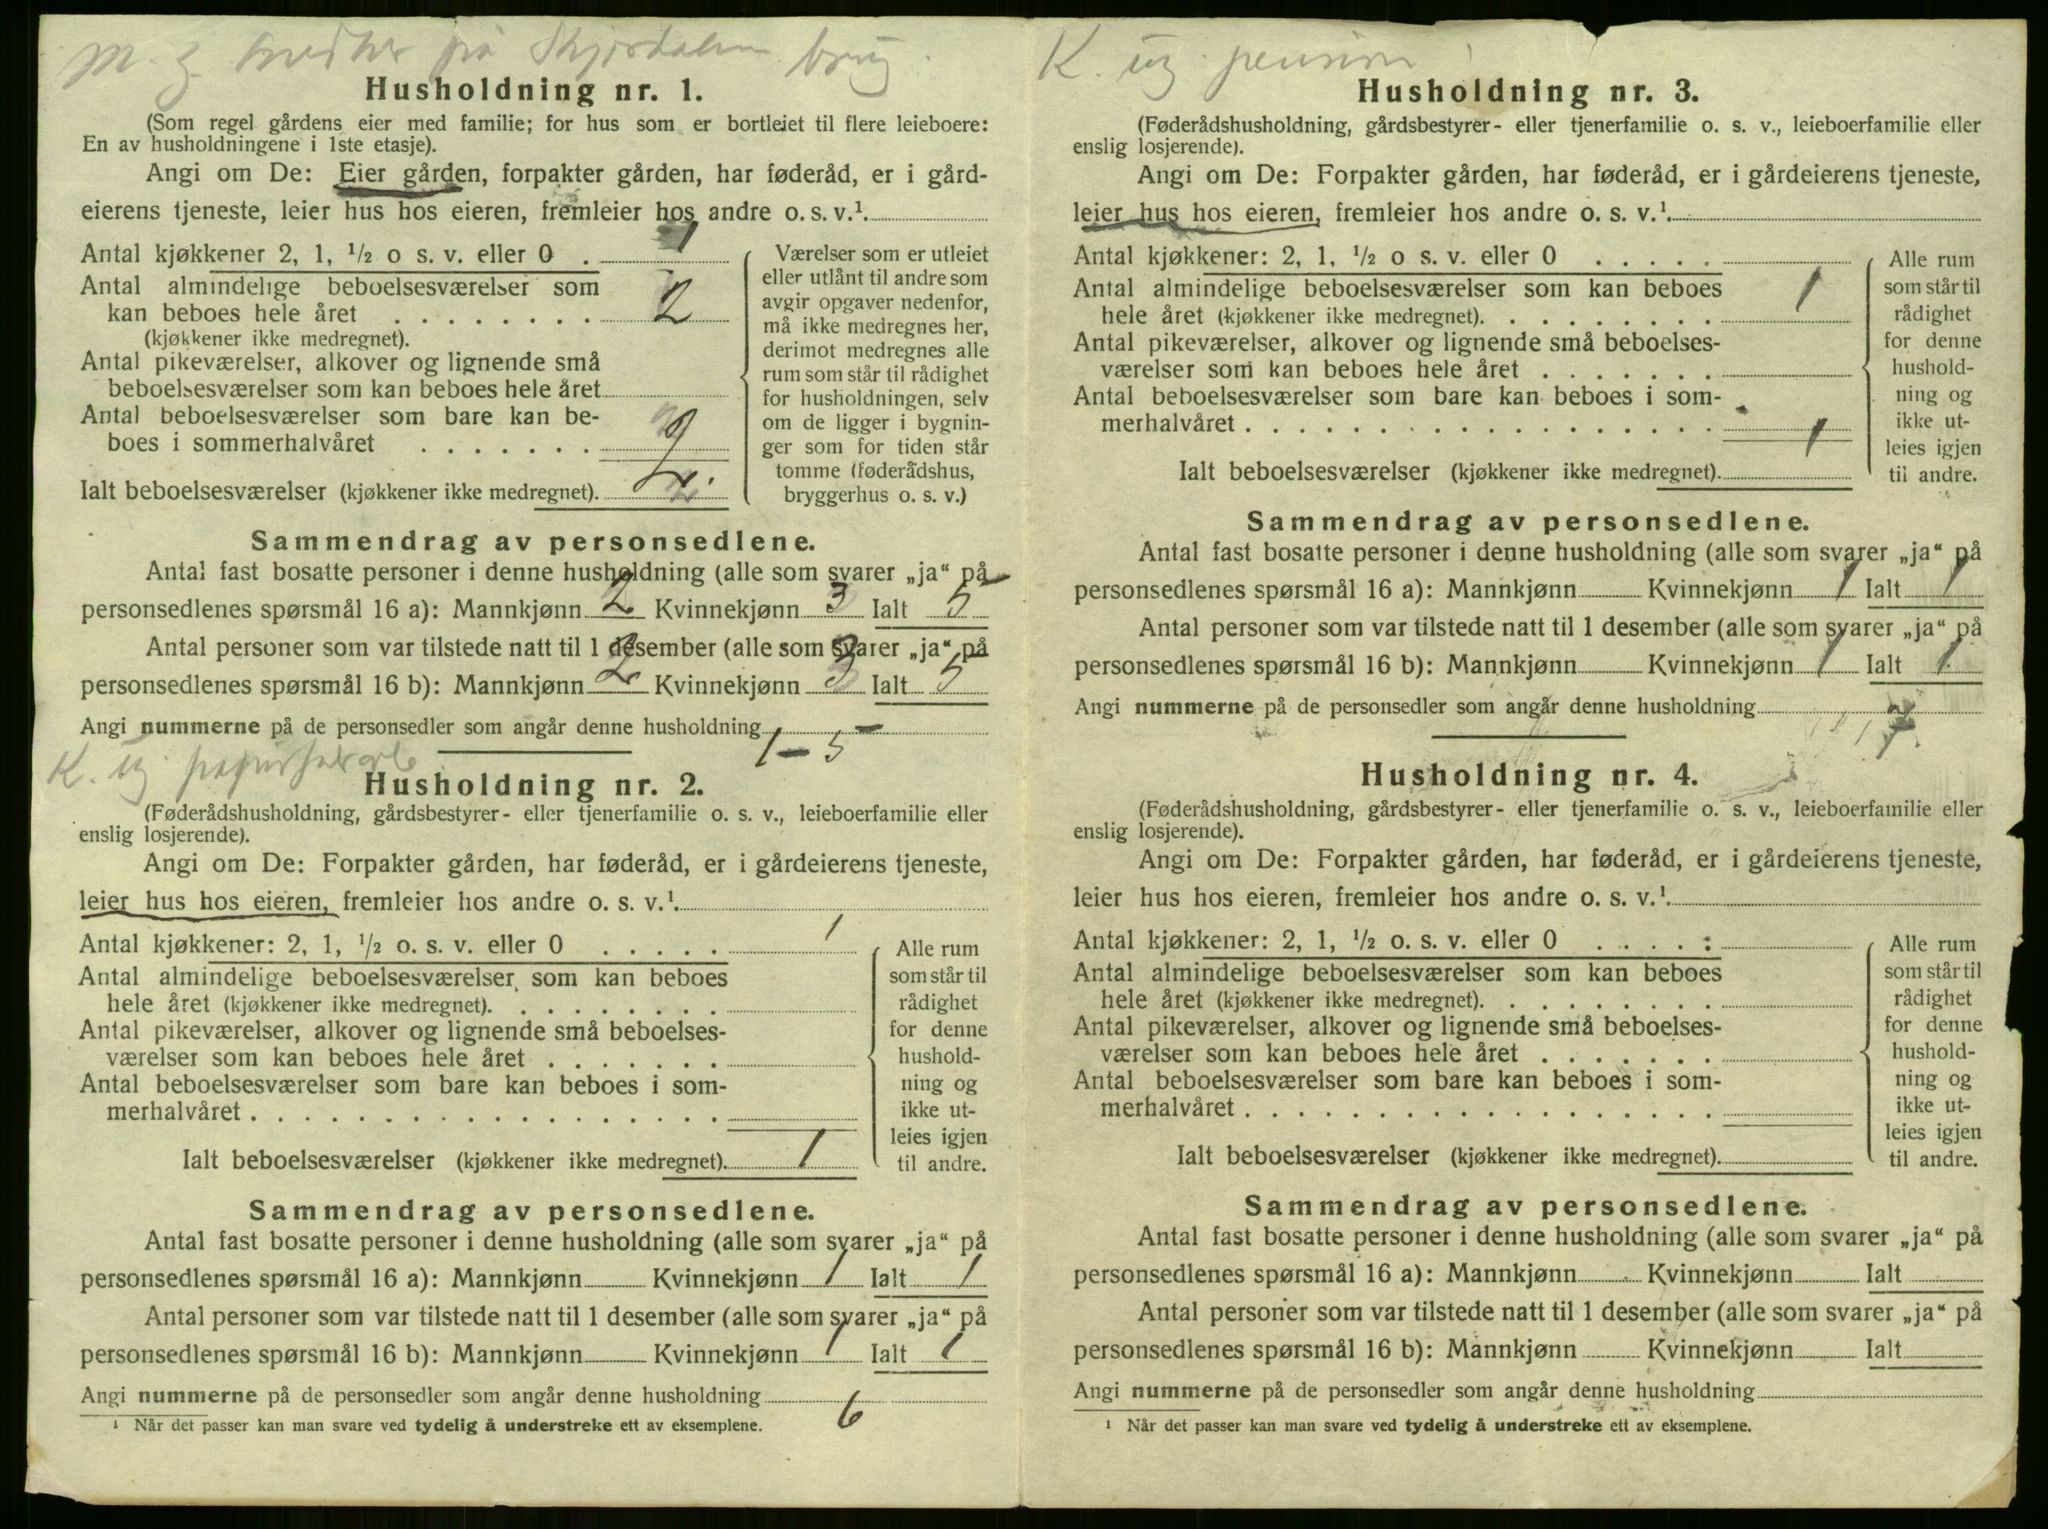 M. g. snedker på Skjørdalens brug.
Husholdning nr. 1.
(Som regel gårdens eier med familie; for hus som er bortleiet til flere leieboere:
En av husholdningene i 1ste etasje).
Angi om De: Eier gården, forpakter gården, har føderåd, er i gård-
eierens tjeneste, leier hus hos eieren, fremleier hos andre o. s. v.¹
Antal kjøkkener 2, 1, ½ o s. v. eller 0 . 1
Antal almindelige beboelsesværelser som
kan beboes hele året . . . . . . . . 2
(kjøkkener ikke medregnet).
Antal pikeværelser, alkover og lignende små
beboelsesværelser som kan beboes hele året
Antal beboelsesværelser som bare kan be-
boes i sommerhalvåret . . . . . . .
Ialt beboelsesværelser (kjøkkener ikke medregnet). 2.
Værelser som er utleiet
eller utlånt til andre som
avgir opgaver nedenfor,
må ikke medregnes her,
derimot medregnes alle
rum som står til rådighet
for husholdningen, selv
om de ligger i bygnin-
ger som for tiden står
tomme (føderådshus,
bryggerhus o. s. v.)
Sammendrag av personsedlene.
Antal fast bosatte personer i denne husholdning (alle som svarer „ja“ på
personsedlenes spørsmål 16 a): Mannkjønn 2 Kvinnekjønn 3 Ialt 5
Antal personer som var tilstede natt til 1 desember (alle som svarer „ja“ på
personsedlenes spørsmål 16 b): Mannkjønn 2 Kvinnekjønn 3 Ialt 5
Angi nummerne på de personsedler som angår denne husholdning 1 – 5
K. ug
Husholdning nr. 2.
(Føderådshusholdning, gårdsbestyrer- eller tjenerfamilie o. s. v., leieboerfamilie eller
enslig losjerende).
Angi om De: Forpakter gården, har føderåd, er i gårdeierens tjeneste,
leier hus hos eieren, fremleier hos andre o. s. v.¹
Antal kjøkkener: 2, 1, ½ o. s. v. eller 0 . . . . . 1
Antal almindelige beboelsesværelser som kan beboes
hele året (kjøkkener ikke medregnet). . . . . . . . .
Antal pikeværelser, alkover og lignende små beboelses-
værelser som kan beboes hele året . . . . . . .
Antal beboelsesværelser som bare kan beboes i som-
merhalvåret . . . . . . . . . . . . . . . . . .
Ialt beboelsesværelser (kjøkkener ikke medregnet). 1
Alle rum
som står til
rådighet
for denne
hushold-
ning og
ikke ut-
leies igjen
til andre.
Sammendrag av personsedlene.
Antal fast bosatte personer i denne husholdning (alle som svarer „ja“ på
personsedlenes spørsmål 16 a): Mannkjønn Kvinnekjønn 1 Ialt 1
Antal personer som var tilstede natt til 1 desember (alle som svarer „ja“ på
personsedlenes spørsmål 16 b): Mannkjønn Kvinnekjønn 1 Ialt 1
Angi nummerne på de personsedler som angår denne husholdning 6
¹ Når det passer kan man svare ved tydelig å understreke ett av eksemplene.
K. ug pension
Husholdning nr. 3.
(Føderådshusholdning, gårdsbestyrer- eller tjenerfamilie o. s. v., leieboerfamilie eller
enslig losjerende).
Angi om De: Forpakter gården, har føderåd, er i gårdeierens tjeneste,
leier hus hos eieren, fremleier hos andre o. s. v.¹
Antal kjøkkener: 2, 1, ½ o s. v. eller 0 . . . . .
Antal almindelige beboelsesværelser som kan beboes
hele året (kjøkkener ikke medregnet). . . . . . . . . 1
Antal pikeværelser, alkover og lignende små beboelses-
værelser som kan beboes hele året . . . . . . .
Antal beboelsesværelser som bare kan beboes i som-
merhalvåret . . . . . . . . . . . . . . . . . .
Ialt beboelsesværelser (kjøkkener ikke medregnet). 1
Alle rum
som står til
rådighet
for denne
hushold-
ning og
ikke ut-
leies igjen
til andre.
Sammendrag av personsedlene.
Antal fast bosatte personer i denne husholdning (alle som svarer „ja“ på
personsedlenes spørsmål 16 a): Mannkjønn Kvinnekjønn 1 Ialt 1
Antal personer som var tilstede natt til 1 desember (alle som svarer „ja“ på
personsedlenes spørsmål 16 b): Mannkjønn Kvinnekjønn 1 Ialt 1
Angi nummerne på de personsedler som angår denne husholdning 7
Husholdning nr. 4.
(Føderådshusholdning, gårdsbestyrer- eller tjenerfamilie o. s. v., leieboerfamilie eller
enslig losjerende).
Angi om De: Forpakter gården, har føderåd, er i gårdeierens tjeneste,
leier hus hos eieren, fremleier hos andre o. s. v.¹
Antal kjøkkener: 2, 1, ½ o. s. v. eller 0 . . . . .
Antal almindelige beboelsesværelser som kan beboes
hele året (kjøkkener ikke medregnet). . . . . . . . .
Antal pikeværelser, alkover og lignende små beboelses-
værelser som kan beboes hele året . . . . . . .
Antal beboelsesværelser som bare kan beboes i som-
merhalvåret . . . . . . . . . . . . . . . . . .
Ialt beboelsesværelser (kjøkkener ikke medregnet).
Alle rum
som står til
rådighet
for denne
hushold-
ning og
ikke ut-
leies igjen
til andre.
Sammendrag av personsedlene.
Antal fast bosatte personer i denne husholdning (alle som svarer „ja“ på
personsedlenes spørsmål 16 a): Mannkjønn Kvinnekjønn Ialt
Antal personer som var tilstede natt til 1 desember (alle som svarer „ja“ på
personsedlenes spørsmål 16 b): Mannkjønn Kvinnekjønn Ialt
Angi nummerne på de personsedler som angår denne husholdning
¹ Når det passer kan man svare ved tydelig å understreke ett av eksemplene.